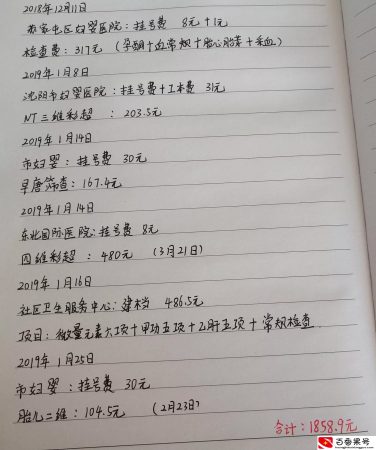 2018年12月11日
苏家屯区妇婴医院：挂号费 8元+1元
检查费：317元 (孕酮+血常规+胎心胎芽+采血)
2019年1月8日
沈阳市妇婴医院：挂号费+工本费 31元
NT三维彩超：203.5元
2019年1月14日
市妇婴：挂号费 30元
早唐筛查：167.4元
2019年1月14日
东北国际医院：挂号费 8元
四维彩超：480元 (3月21日)
2019年1月16日
社区卫生服务中心：建档 486.5元
项目：微量元素六项+甲功五项+乙肝五项+常规检查
2019年1月25日
市妇婴：挂号费 30元
胎儿二维：104.5元 (2月23日)
合计：1858.9元
百香果号